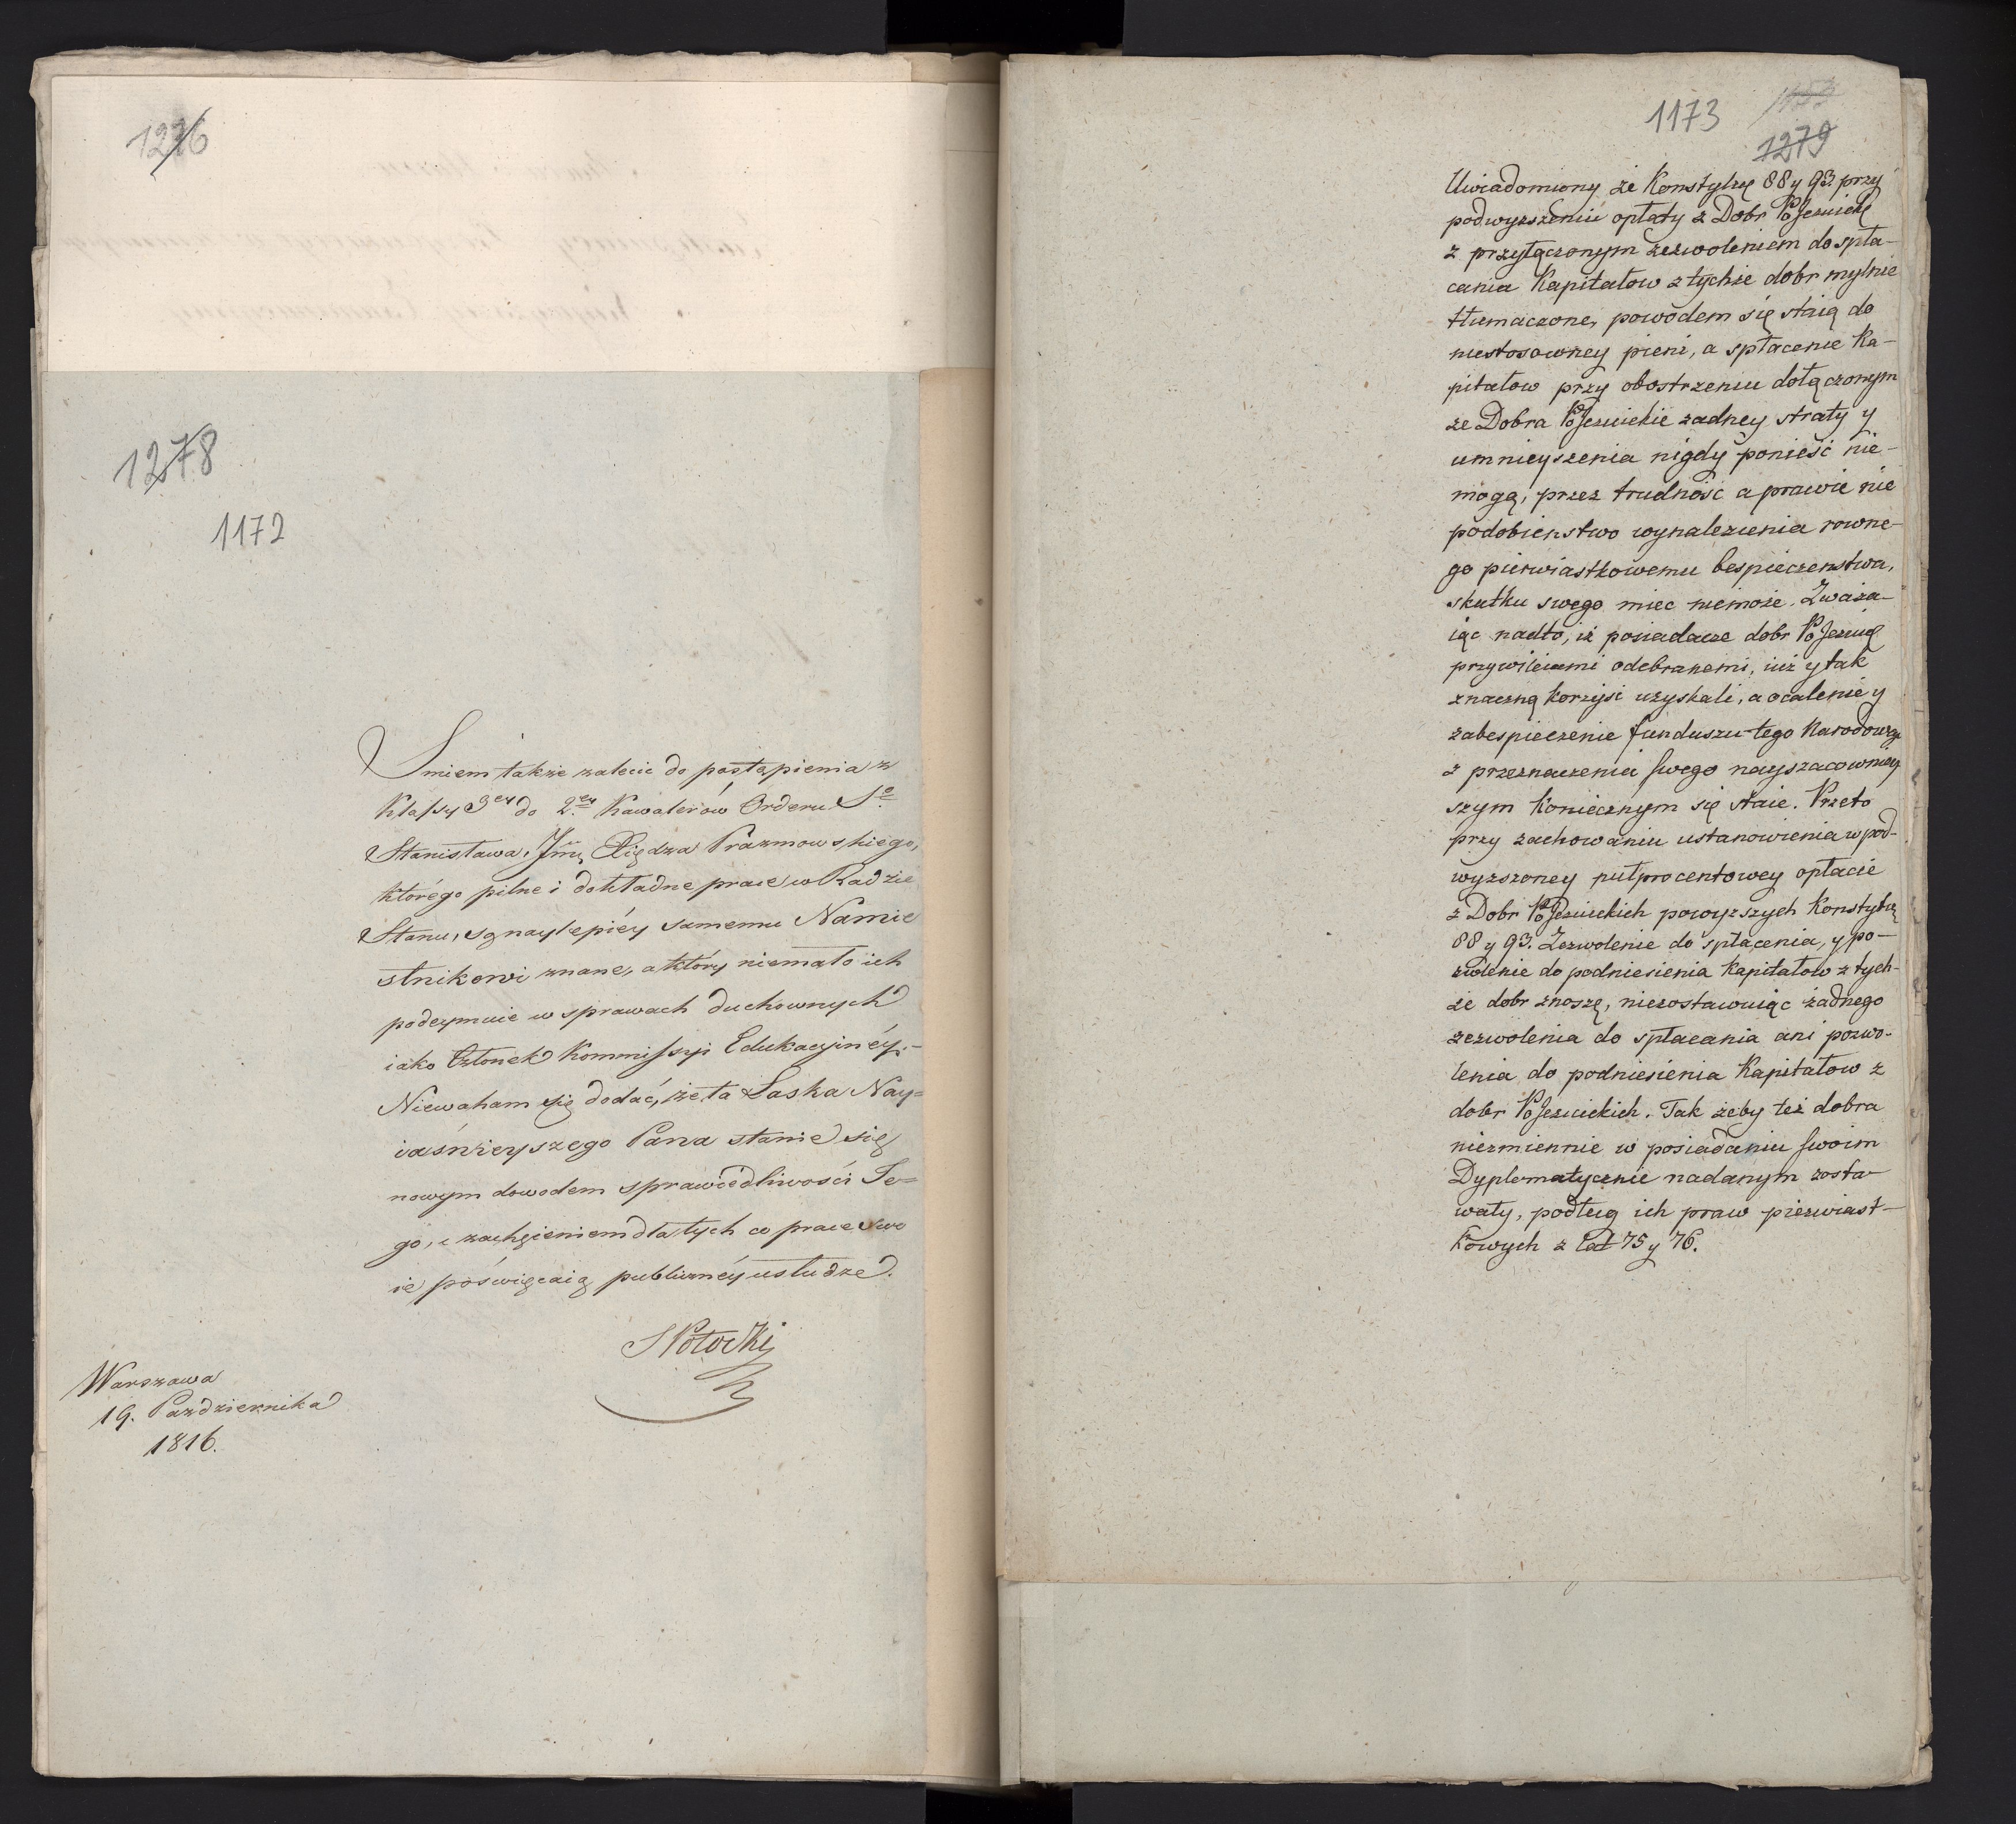 1276
1278
1172
Smiem także zalecić do postąpienia z
Klassy 3ey do 2ey Kawalerów Orderu So
Stanisława, Jmę Xiędza Prazmowskiego,
którego pilne i dokładne prace w Radzie
Stanu, są naylepiéy samemu Namie
stnikowi znane, a który niemało ich
podeymuie w sprawach duchownych
iako Członek Kommissyi Edukacyinéy.-
Niewaham się dodać, że ta Łaska Nay=
iaśnieyszego Pana stanie się
nowym dowodem sprawiedliwości Je=
go, i zachęceniem dla tych co prace swo
ie poświęcaią publicznéy usłudze.
SPotocki
Warszawa
19. Pazdziernika
1816.
1173
1279
Uwiadomiony że Konstytucę 88 y 93. przy
podwyzszeniu opłaty z Dobr PoJezuickę
z przyłączonym zezwoleniem do spła-
cania Kapitałow z tychże dobr mylnie
tłumaczone, powodem się staią do
niestosowney pieni, a spłacenie Ka-
pitałow przy obostrzeniu dołączonym
ze Dobra PoJezuickie zadney straty y
umnieyszenia nigdy ponieść nie-
mogą, przez trudność a prawie nie
podobienstwo wynalezienia rowne-
go pierwiastkowemu bespieczenstwa,
skutku swego miec niemoże. Zważa-
iąc nadto, iż posiadacze dobr PoJezuię
przywileiami odebranemi, iuż y tak
znaczną korzysć uzyskali, a ocalenie y
zabespieczenie funduszu tego Narodowego
z przeznaczenia swego nayszacowniey
szym koniecznym się staie. Przeto
przy zachowaniu ustanowienia w pod-
wyzszoney pułprocentowey opłacie
z Dobr PoJezuickich powyzszych Konstytucę
88 y 93. Zezwolenie do spłacenia, y po-
zwolenie do podniesienia Kapitałow z tych-
że dobr znoszę, niezostawuiąc żadnego
zezwolenia do spłacania ani pozwo-
lenia do podniesienia Kapitałow z
dobr PoJezuickich. Tak żeby też dobra
niezmiennie w posiadaniu swoim
Dyplomatycznie nadanym zosta-
wały, podług ich praw pierwiast-
kowych z Lat 75 y 76.